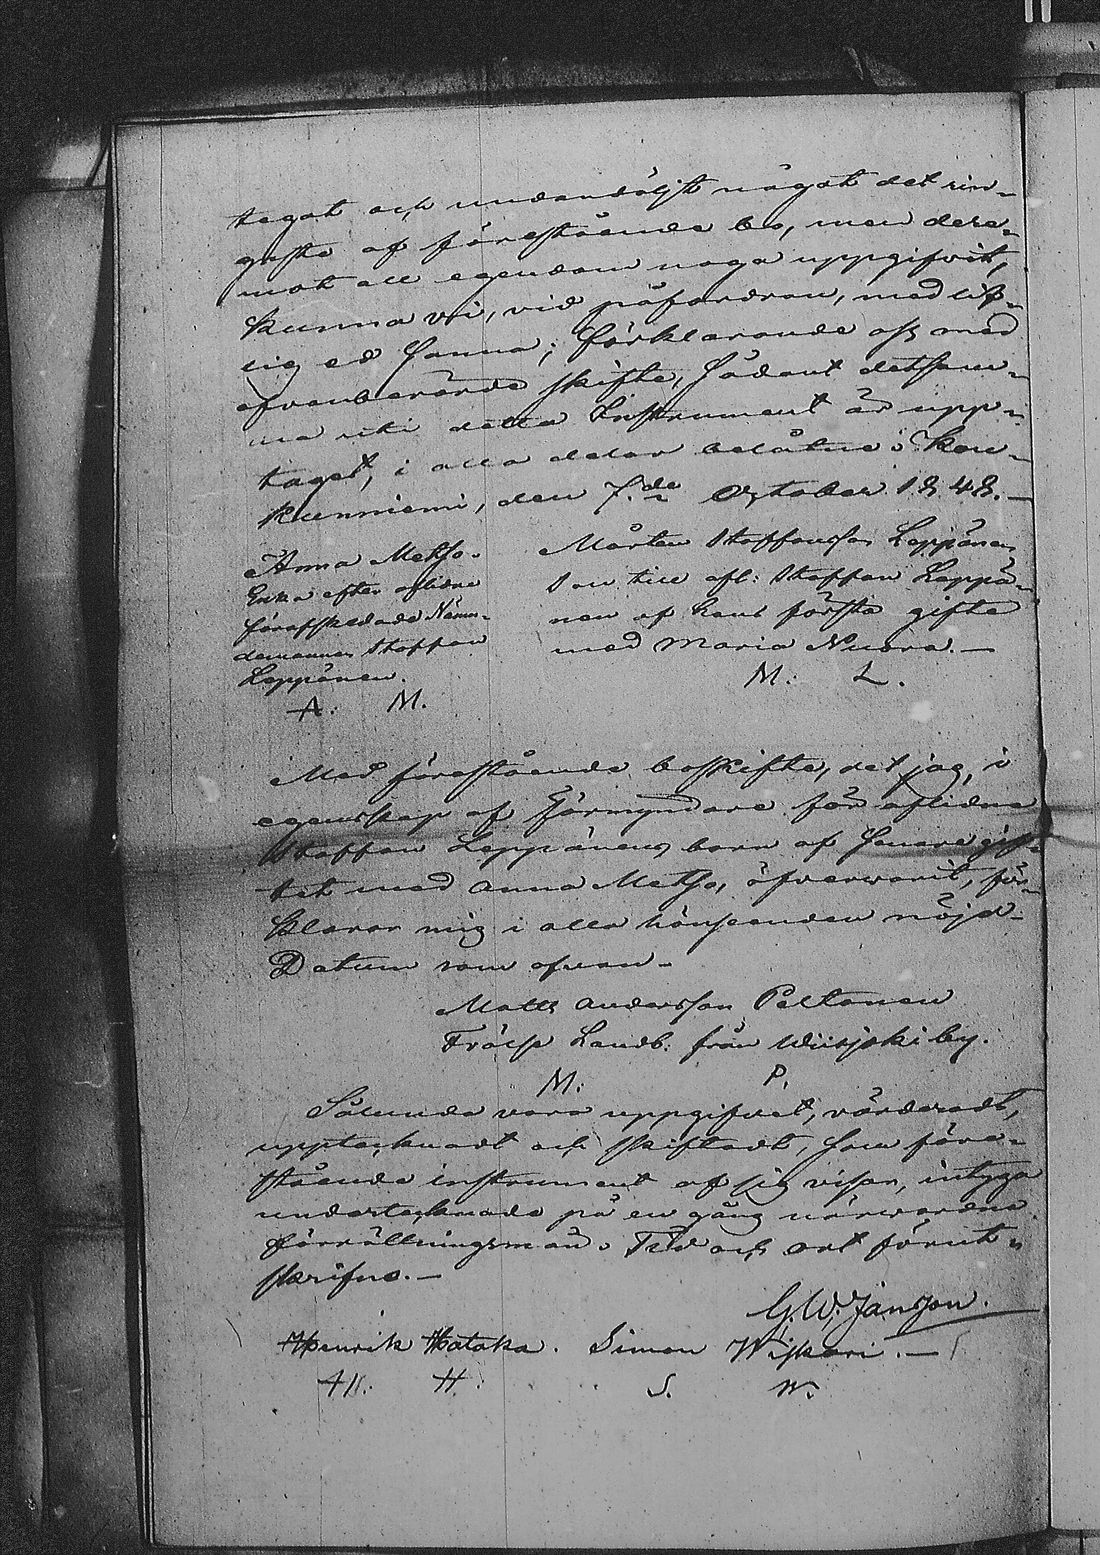 tagat och undandöljt något det rin-
gaste af förestående bo, men dere-
mot all egendom noga uppgifvit,
kunna vi, vid påfordran, med lif-
lig ed sanna; förklarande oss med
ofvanberörde skifte, sådant detsam-
ma uti detta Instrument är upp-
taget, i alla delar belåtne. Kau-
kunniemi, den 7.de October 1848.—
Anna Metso.
Enka efter aflidne
förafskedade Näm-
demannen Staffan
Leppänen.
A. M.
Mårten Staffansson Leppänen,
Son till afl: Staffan Leppä-
nen af hans första gifte
med Maria Nuora.—
M: L.
Med förestående boskifte, det jag, i
egenskap af Förmyndare för aflidne
Staffan Leppänens barn af senare gif-
tet med Anna Metso, öfverwarit, för-
klarar mig i alla hänseenden nöjd.
Datum som ofvan.
Matts Andersson Peltonen
Frälse Landb: från Wiisjoki by.
M: P.
Sålunda vara uppgifvet, värderadt,
upptecknadt och skiftadt, som före-
stående instrument af sig visar, intyga
undertecknade på en gång närwarane
förrättningsmän. Tid och ort förut-
skrifne.—
G. W. Jansson.
Henrik Hataka. Simon Wiskari.—
H. H. S. W.